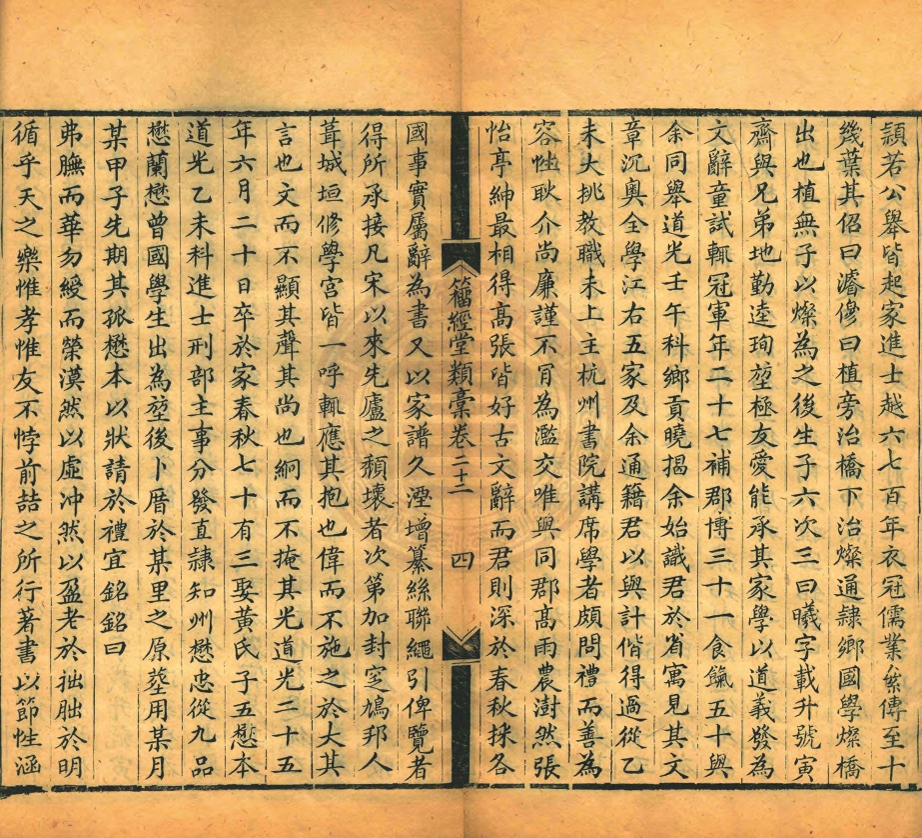 頴若公舉皆起家進士越六七百年衣冠儒業絫傳至十
幾葉其佋曰濬傪曰植旁治橋下治燦通隷鄉國學燦橋
出也植無子以燦為之後生子六次三曰曦字載升號寅
齋與兄弟地勤逵珣堃極友愛能承其家學以道義發為
文辭童試輒冠軍年二十七補郡博三十一食餼五十與
余同舉道光壬午科鄉貢曉揭余始識君於省寓見其文
章沉奧全學江右五家及余通籍君以與計偕得過從乙
未大挑教職未上主杭州書院講席學者頗問禮而善為
容性耿介尚廉謹不肯為濫交唯與同郡髙雨農澍然張
怡亭紳最相得髙張皆好古文辭而君則深於春秋採各
籀經堂類稾卷二十二
四
國事實屬辭為書又以家譜久湮增纂絲聯繩引俾覽者
得所承接凡宋以來先廬之頹壞者次第加封窆鳩邦人
葺城垣修學宮皆一呼輒應其抱也偉而不施之於大其
言也文而不顯其聲其尚也絅而不掩其光道光二十五
年六月二十日卒於家春秋七十有三娶黃氏子五懋本
道光乙未科進士刑部主事分發直隷知州懋忠從九品
懋蘭懋曾國學生出為堃後卜厝於某里之原塟用某月
某甲子先期其孤懋本以狀請於禮宜銘銘曰
弗膴而華勿綬而榮漠然以虛冲然以盈老於祂朏於明
循乎天之樂惟孝惟友不悖前喆之所行著書以節性涵